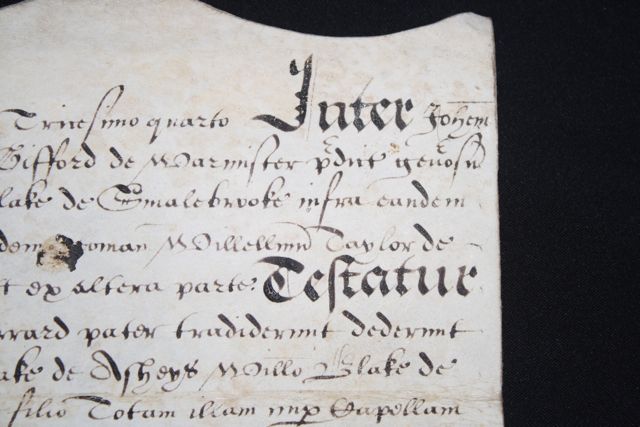 Tricesimo quarto Inter Johem
Gifford de Warmister pdict genosu
lake de Smalebrooke infra eandem
dem yoman Willelmu Taylor de
t ex altera parte Testatur
rrard pater tradiderunt dederunt
ake de Asheys Willo Blake de
filio Totam illam nup Capellam